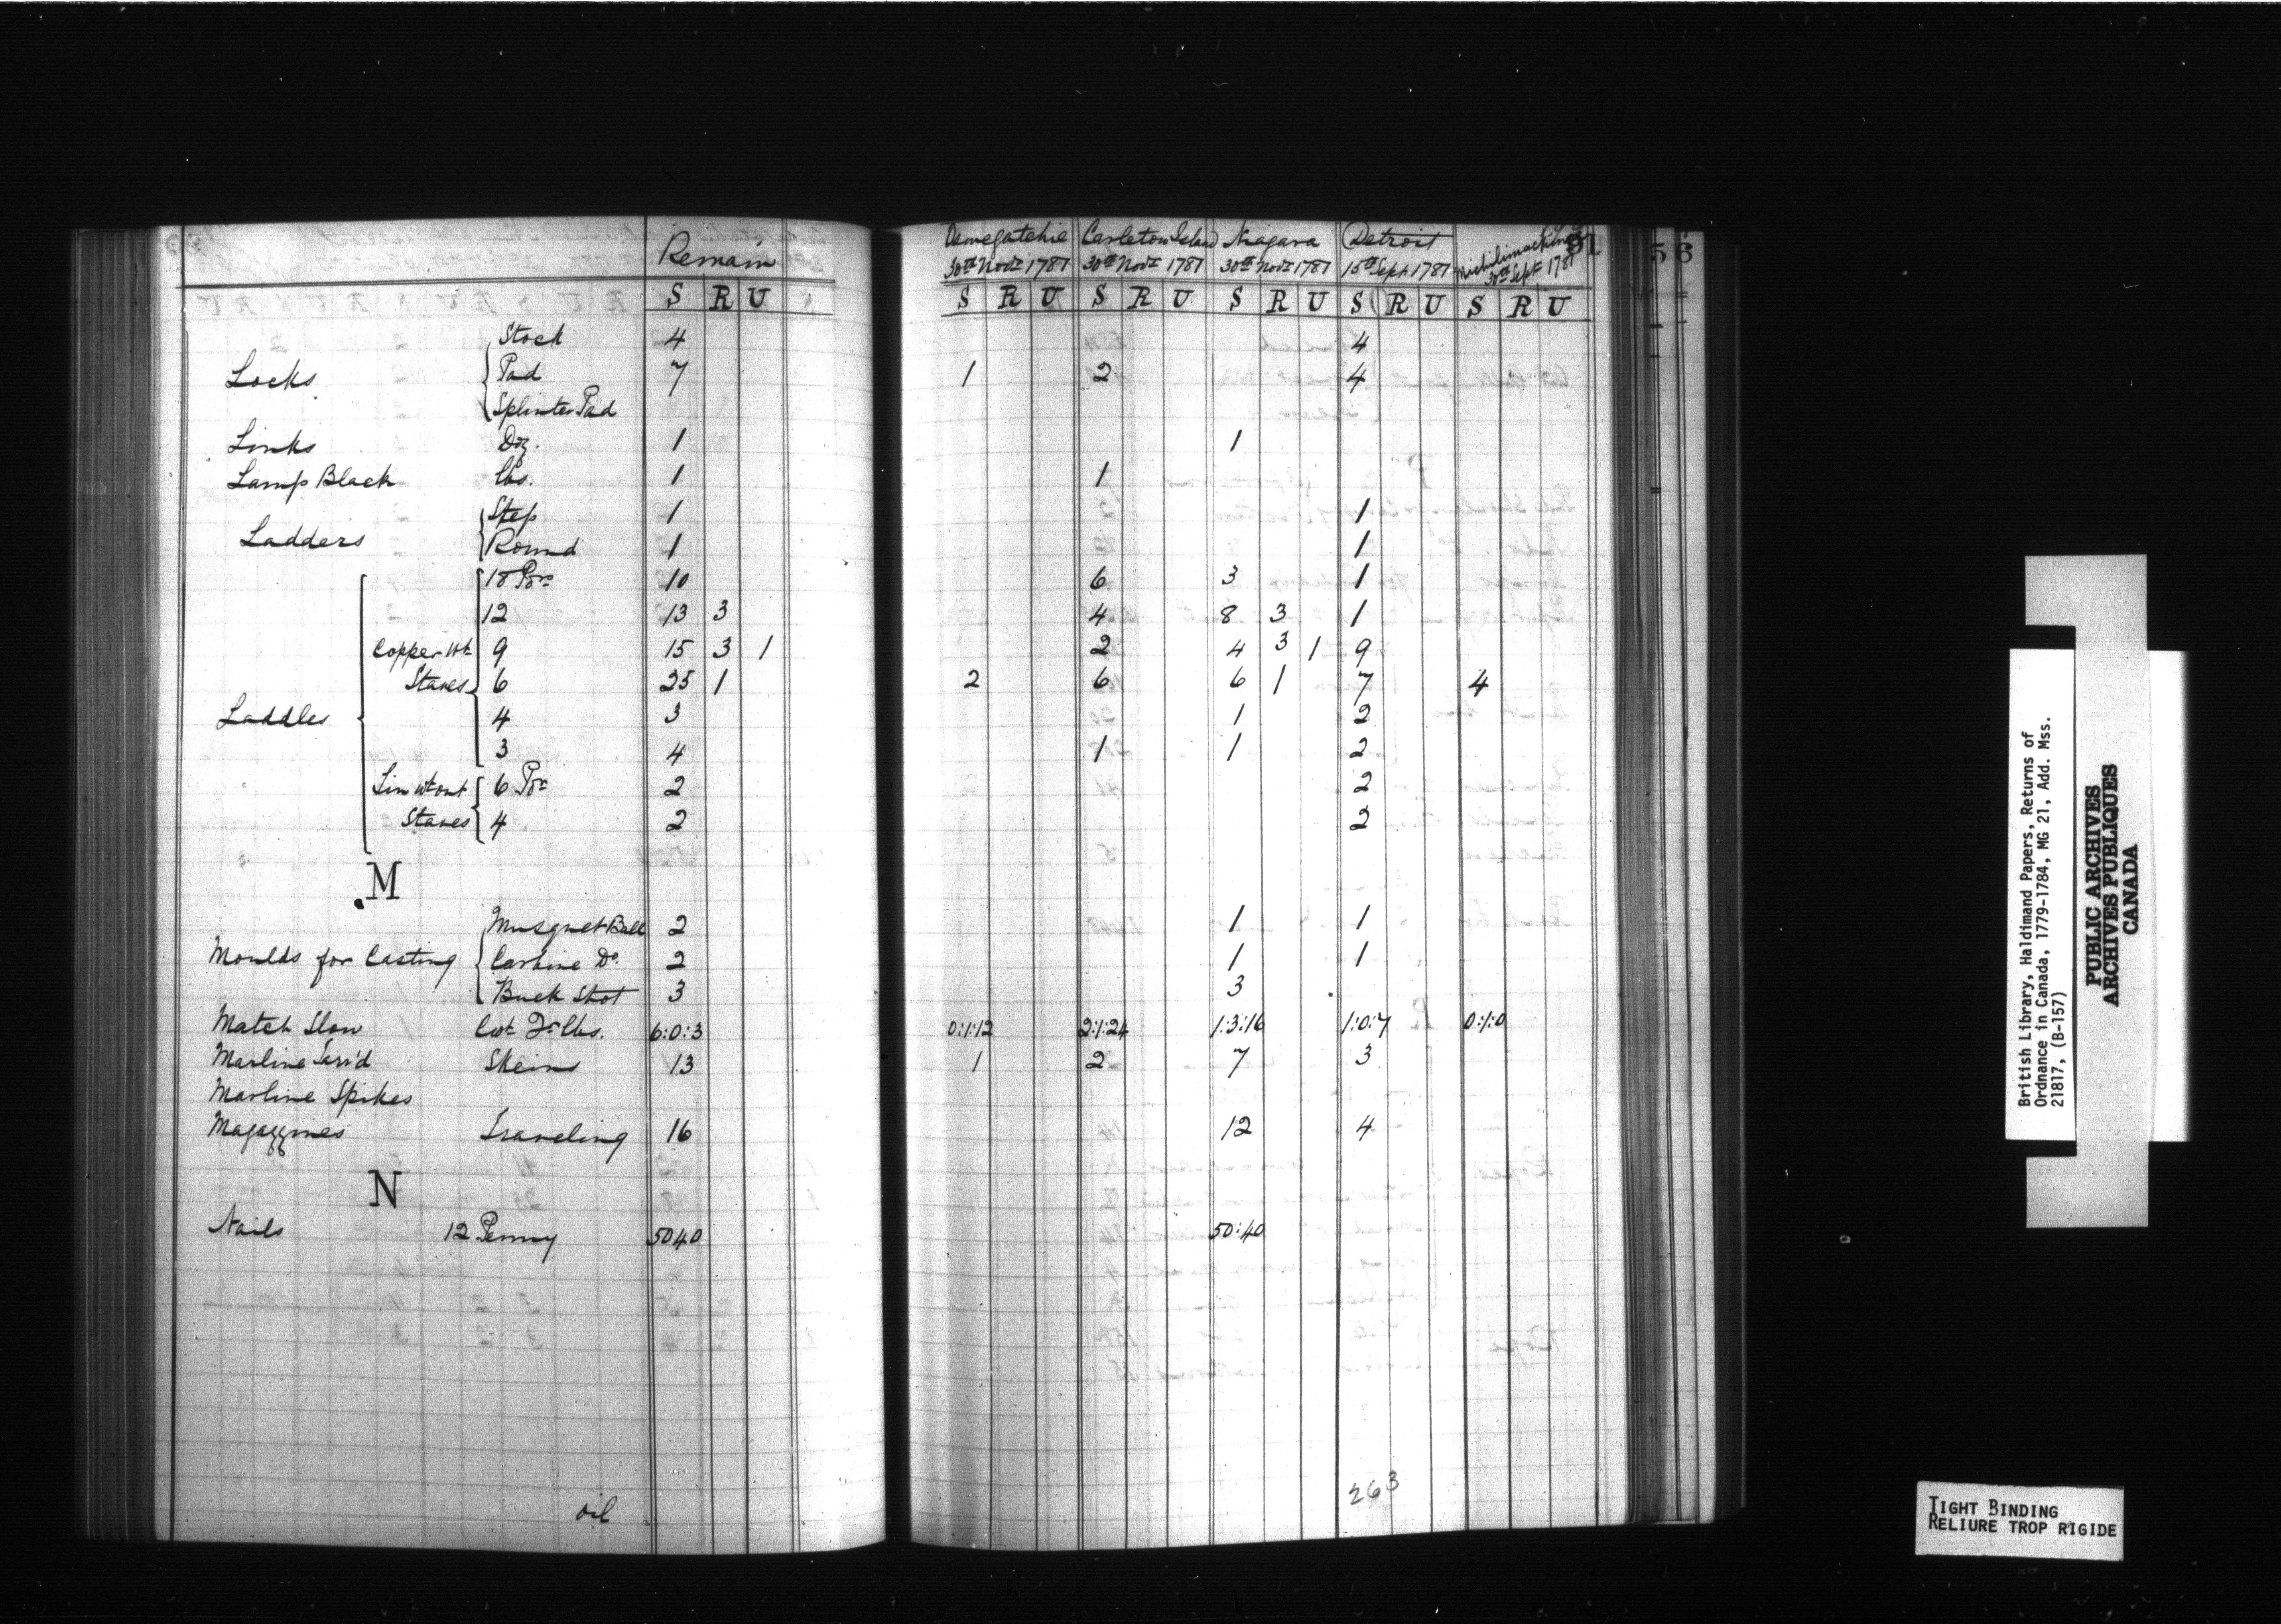 Remain
S R U
Locks { Stock 4
Pad 7
Splinter Pad
Links Doz. 1
Lamp Black lbs. 1
Ladders { Step 1
Round 1
Laddles { Copper wt Staves { 18 Pors 10
12 13 3
9 15 3 1
6 25 1
4 3
3 4
Tin wtout Staves { 6 Por 2
4 2
M
Moulds for Casting { Musquet Ball 2
Carbine Do. 2
Buck Shot 3
Match Slow Cwt Qr lbs. 6:0:3
Marline Tarr'd Skeins 13
Marline Spikes
Magazzines Traveling 16
N
Nails 12 Penny 5040
oil
Oswegatchie Carleton Island Niagara Detroit Michilimackinac 91
30th Novr 1781 30th Novr 1781 30th Novr 1781 15th Sept 1781 30th Sept 1781
S R U S R U S R U S R U S R U
4
1 2 4
1
1
1
1
6 3 1
4 8 3 1
2 4 3 1 9
2 6 6 1 7 4
1 2
1 1 2
2
2
1 1
1 1
3
0:1:12 2:1:24 1:3:16 1:0:7 0:1:0
1 2 7 3
12 4
50:40
263
56
British Library, Haldimand Papers, Returns of
Ordnance in Canada, 1779-1784, MG 21, Add. Mss.
21817, (B-157)
PUBLIC ARCHIVES
ARCHIVES PUBLIQUES
CANADA
TIGHT BINDING
RELIURE TROP RIGIDE